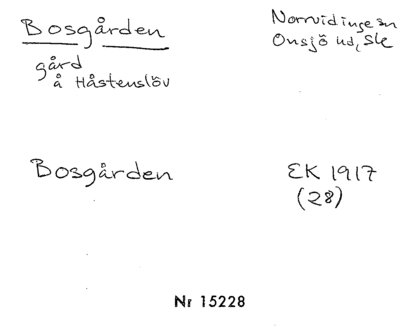 Bosgården
gård
å Håstenslöv
Norrvidinge sn
Onsjö hd, Sk
Bosgården
EK 1917
(28)
Nr 15228